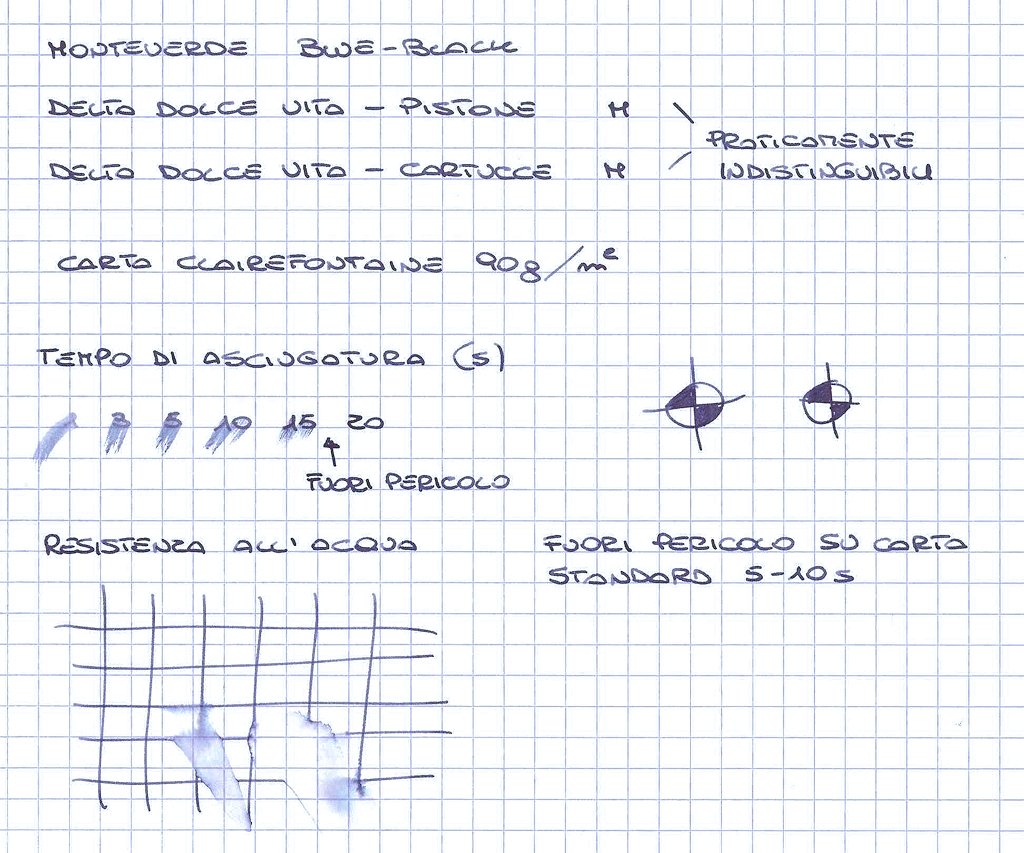 MONTEVERDE BLUE-BLACK
DELTA DOLCE VITA - PISTONE M
DELTA DOLCE VITA - CARTUCCE M
PRATICAMENTE
INDISTINGUIBILI
CARTA CLAIREFONTAINE 90g/m²
TEMPO DI ASCIUGATURA (s)
1 3 5 10 15 20
FUORI PERICOLO
RESISTENZA ALL'ACQUA
FUORI PERICOLO SU CARTA
STANDARD 5-10s